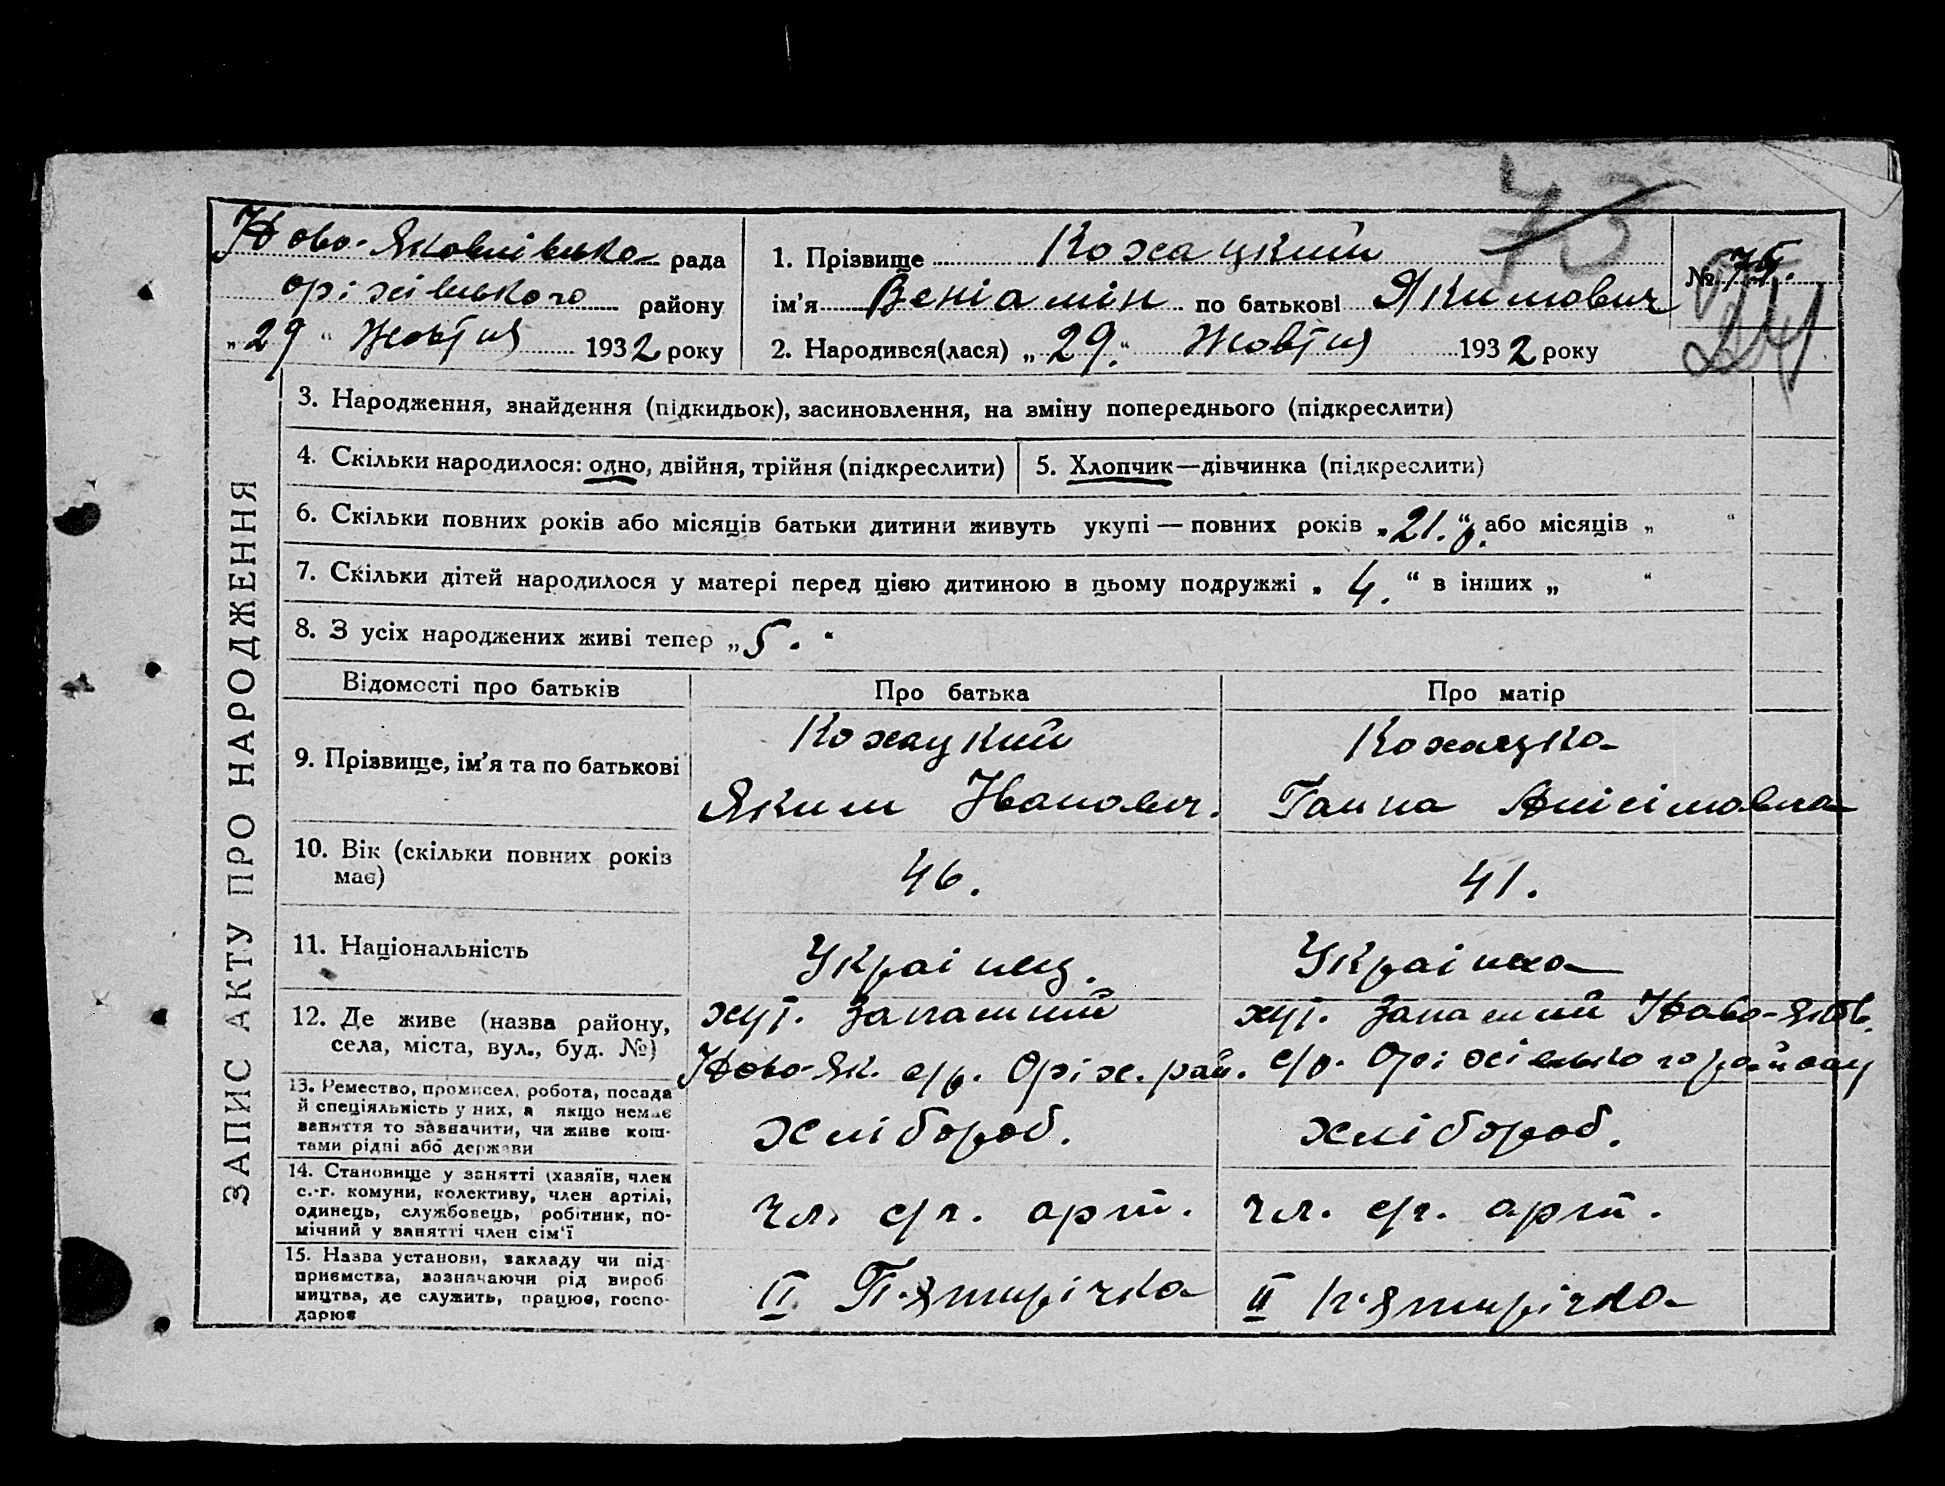 75
Ново-Яковлівська рада
Оріхівського району
„29“ Жовтня 1932 року
1. Прізвище Кохацкий
ім'я Веніамін по батькові Якимович
2. Народився(лася) „29.“ Жовтня 1932 року
№ 75.
24
ЗАПИС АКТУ ПРО НАРОДЖЕННЯ
3. Народження, знайдення (підкидьок), засиновлення, на зміну попереднього (підкреслити)
4. Скільки народилося: одно, двійня, трійня (підкреслити)
5. Хлопчик—дівчинка (підкреслити)
6. Скільки повних років або місяців батьки дитини живуть укупі — повних років „21.“ р. або місяців „ “
7. Скільки дітей народилося у матері перед цією дитиною в цьому подружжі „4.“ в інших „ “
8. З усіх народжених живі тепер „5.“
Відомості про батьків
Про батька
Про матір
9. Прізвище, ім'я та по батькові
Кохацкий
Яким Іванович.
Кохацка
Ганна Анісімовна
10. Вік (скільки повних років
має)
46.
41.
11. Національність
Украінец.
Украінка
12. Де живе (назва району,
села, міста, вул., буд. №)
хут. Запасний
Ново-Як. с/р. Оріх. рай.
хут. Запасний Ново-Яков.
с/р. Оріхівського району
13. Ремество, промисел, робота, посада
й спеціяльність у них, а якщо немає
заняття то зазначити, чи живе кош-
тами рідні або держави
хлібороб.
хлібороб.
14. Становище у занятті (хазяїн, член
с.-г. комуни, колективу, член артілі,
одинець, службовець, робітник, по-
мічний у занятті член сім'ї
чл. с/г. арт.
чл. с/г. арт.
15. Назва установи, закладу чи під-
приємства, зазначаючи рід вироб-
ництва, де служить, працює, госпо-
дарює
II П'ятирічка
II п'ятирічка